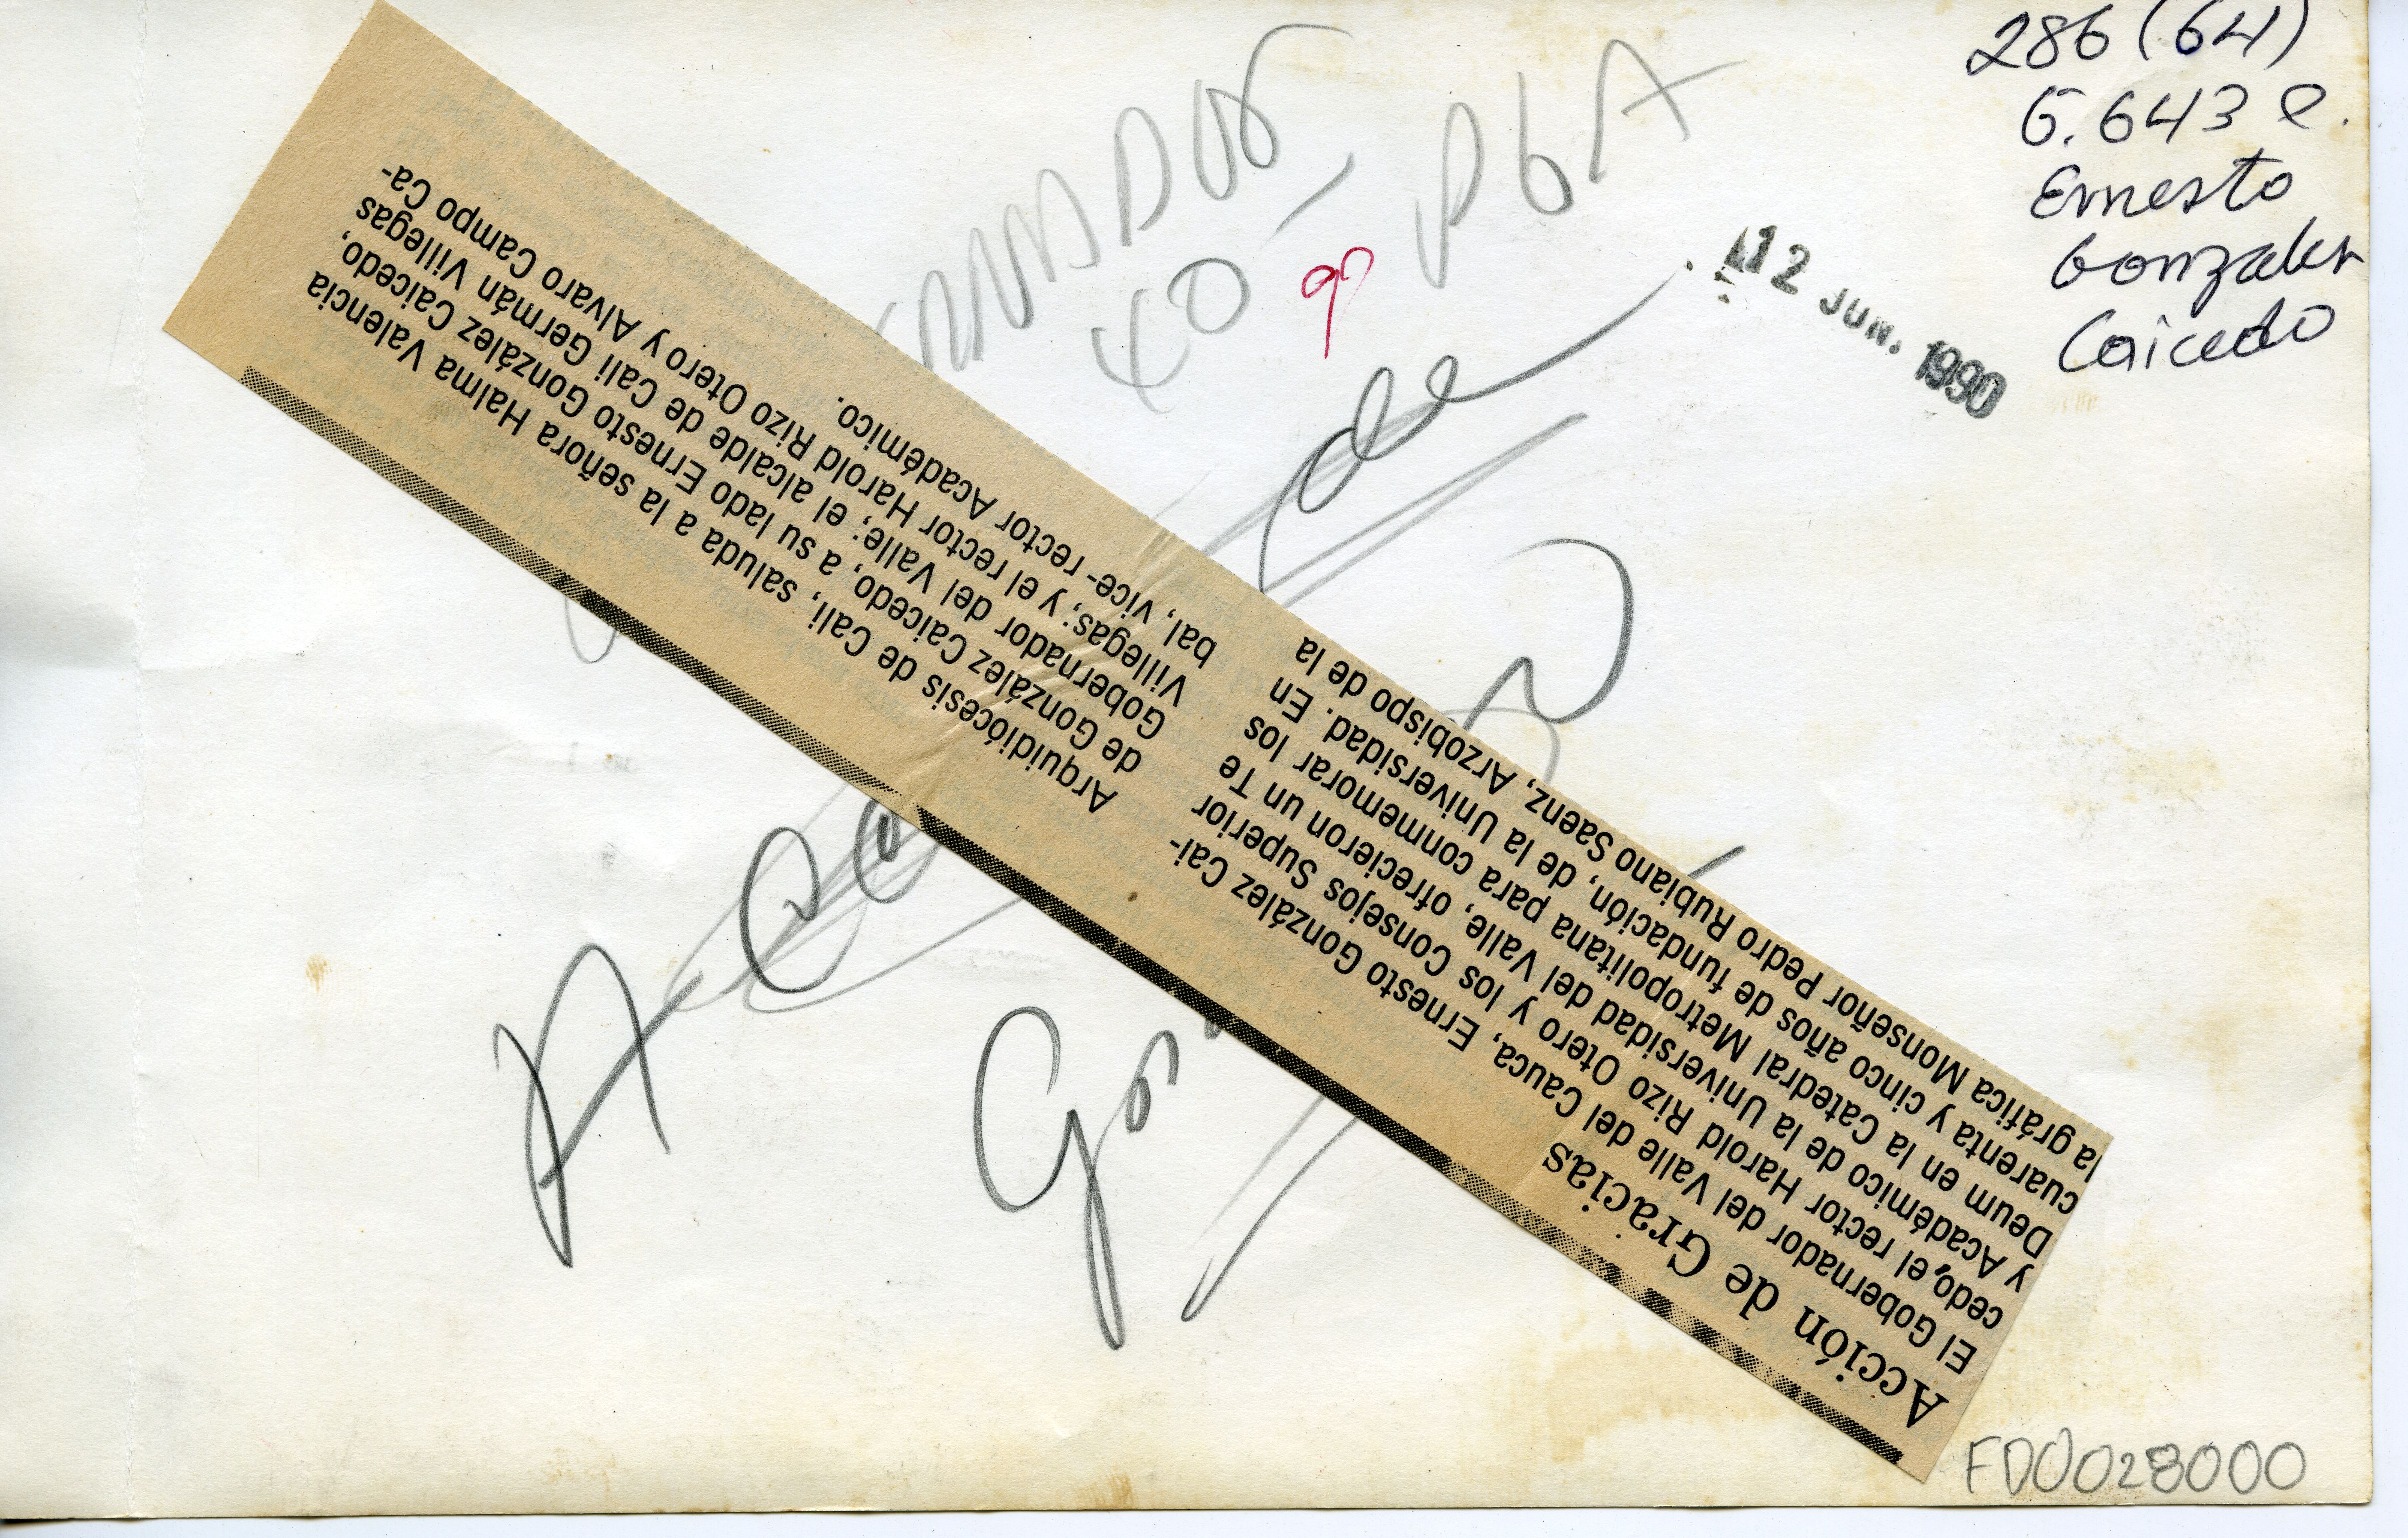 286 (64)
G. 643 e.
Ernesto
Gonzalez
Caicedo
12 JUN. 1990
Acción de Gracias
El Gobernador del Valle del Cauca, Ernesto González Cai-
cedo, el rector Harold Rizo Otero y los Consejos Superior
y Académico de la Universidad del Valle, ofrecieron un Te
Deum en la Catedral Metropolitana para conmemorar los
cuarenta y cinco años de fundación, de la Universidad. En
la gráfica Monseñor Pedro Rubiano Saenz, Arzobispo de la
Arquidiócesis de Cali, saluda a la señora Halma Valencia
de González Caicedo, a su lado Ernesto González Caicedo,
Gobernador del Valle; el alcalde de Cali Germán Villegas
Villegas; y el rector Harold Rizo Otero y Alvaro Campo Ca-
bal, vice- rector Académico.
FD0028000